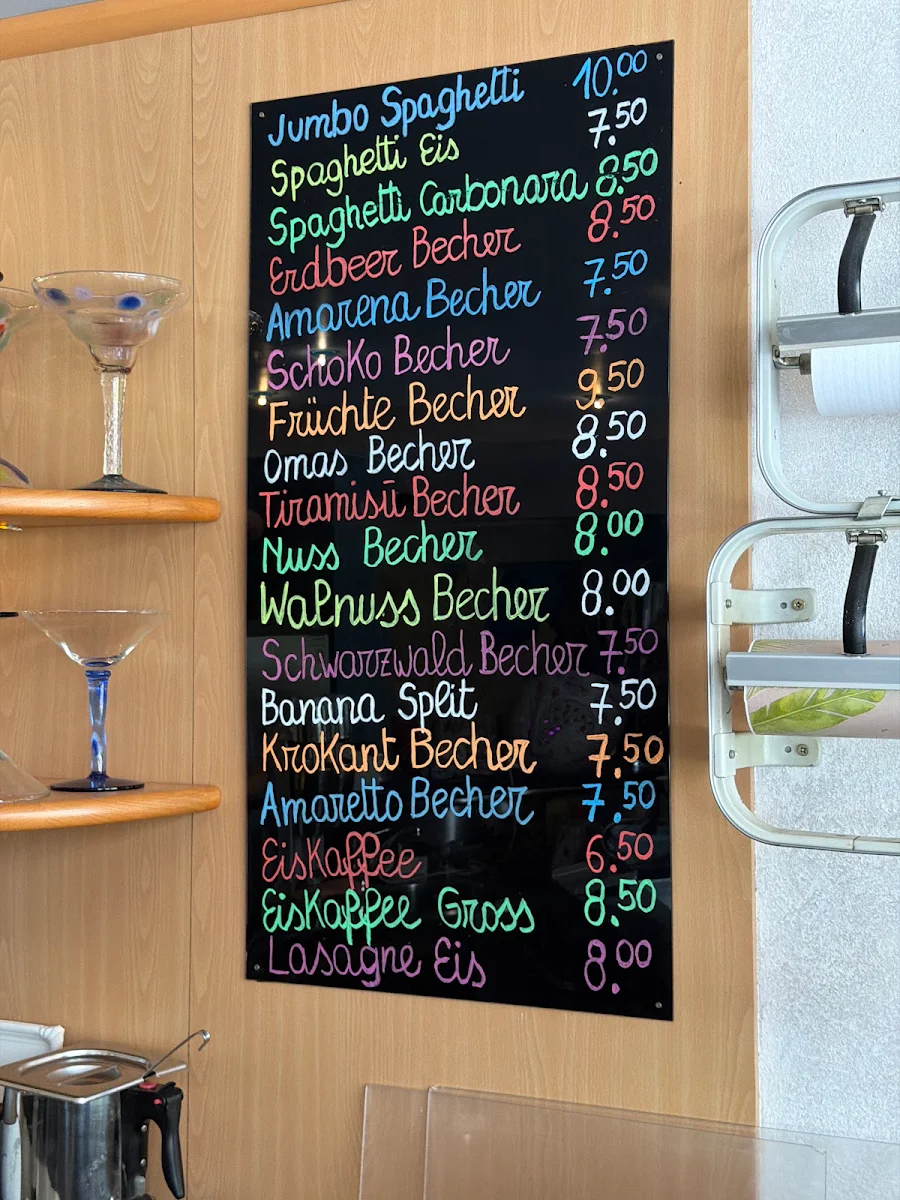 Jumbo Spaghetti 10.00
Spaghetti Eis 7.50
Spaghetti Carbonara 8.50
Erdbeer Becher 8.50
Amarena Becher 7.50
Schoko Becher 7.50
Früchte Becher 9.50
Omas Becher 8.50
Tiramisū Becher 8.50
Nuss Becher 8.00
Walnuss Becher 8.00
Schwarzwald Becher 7.50
Banana Split 7.50
Krokant Becher 7.50
Amaretto Becher 7.50
Eiskaffee 6.50
Eiskaffee Gross 8.50
Lasagne Eis 8.00